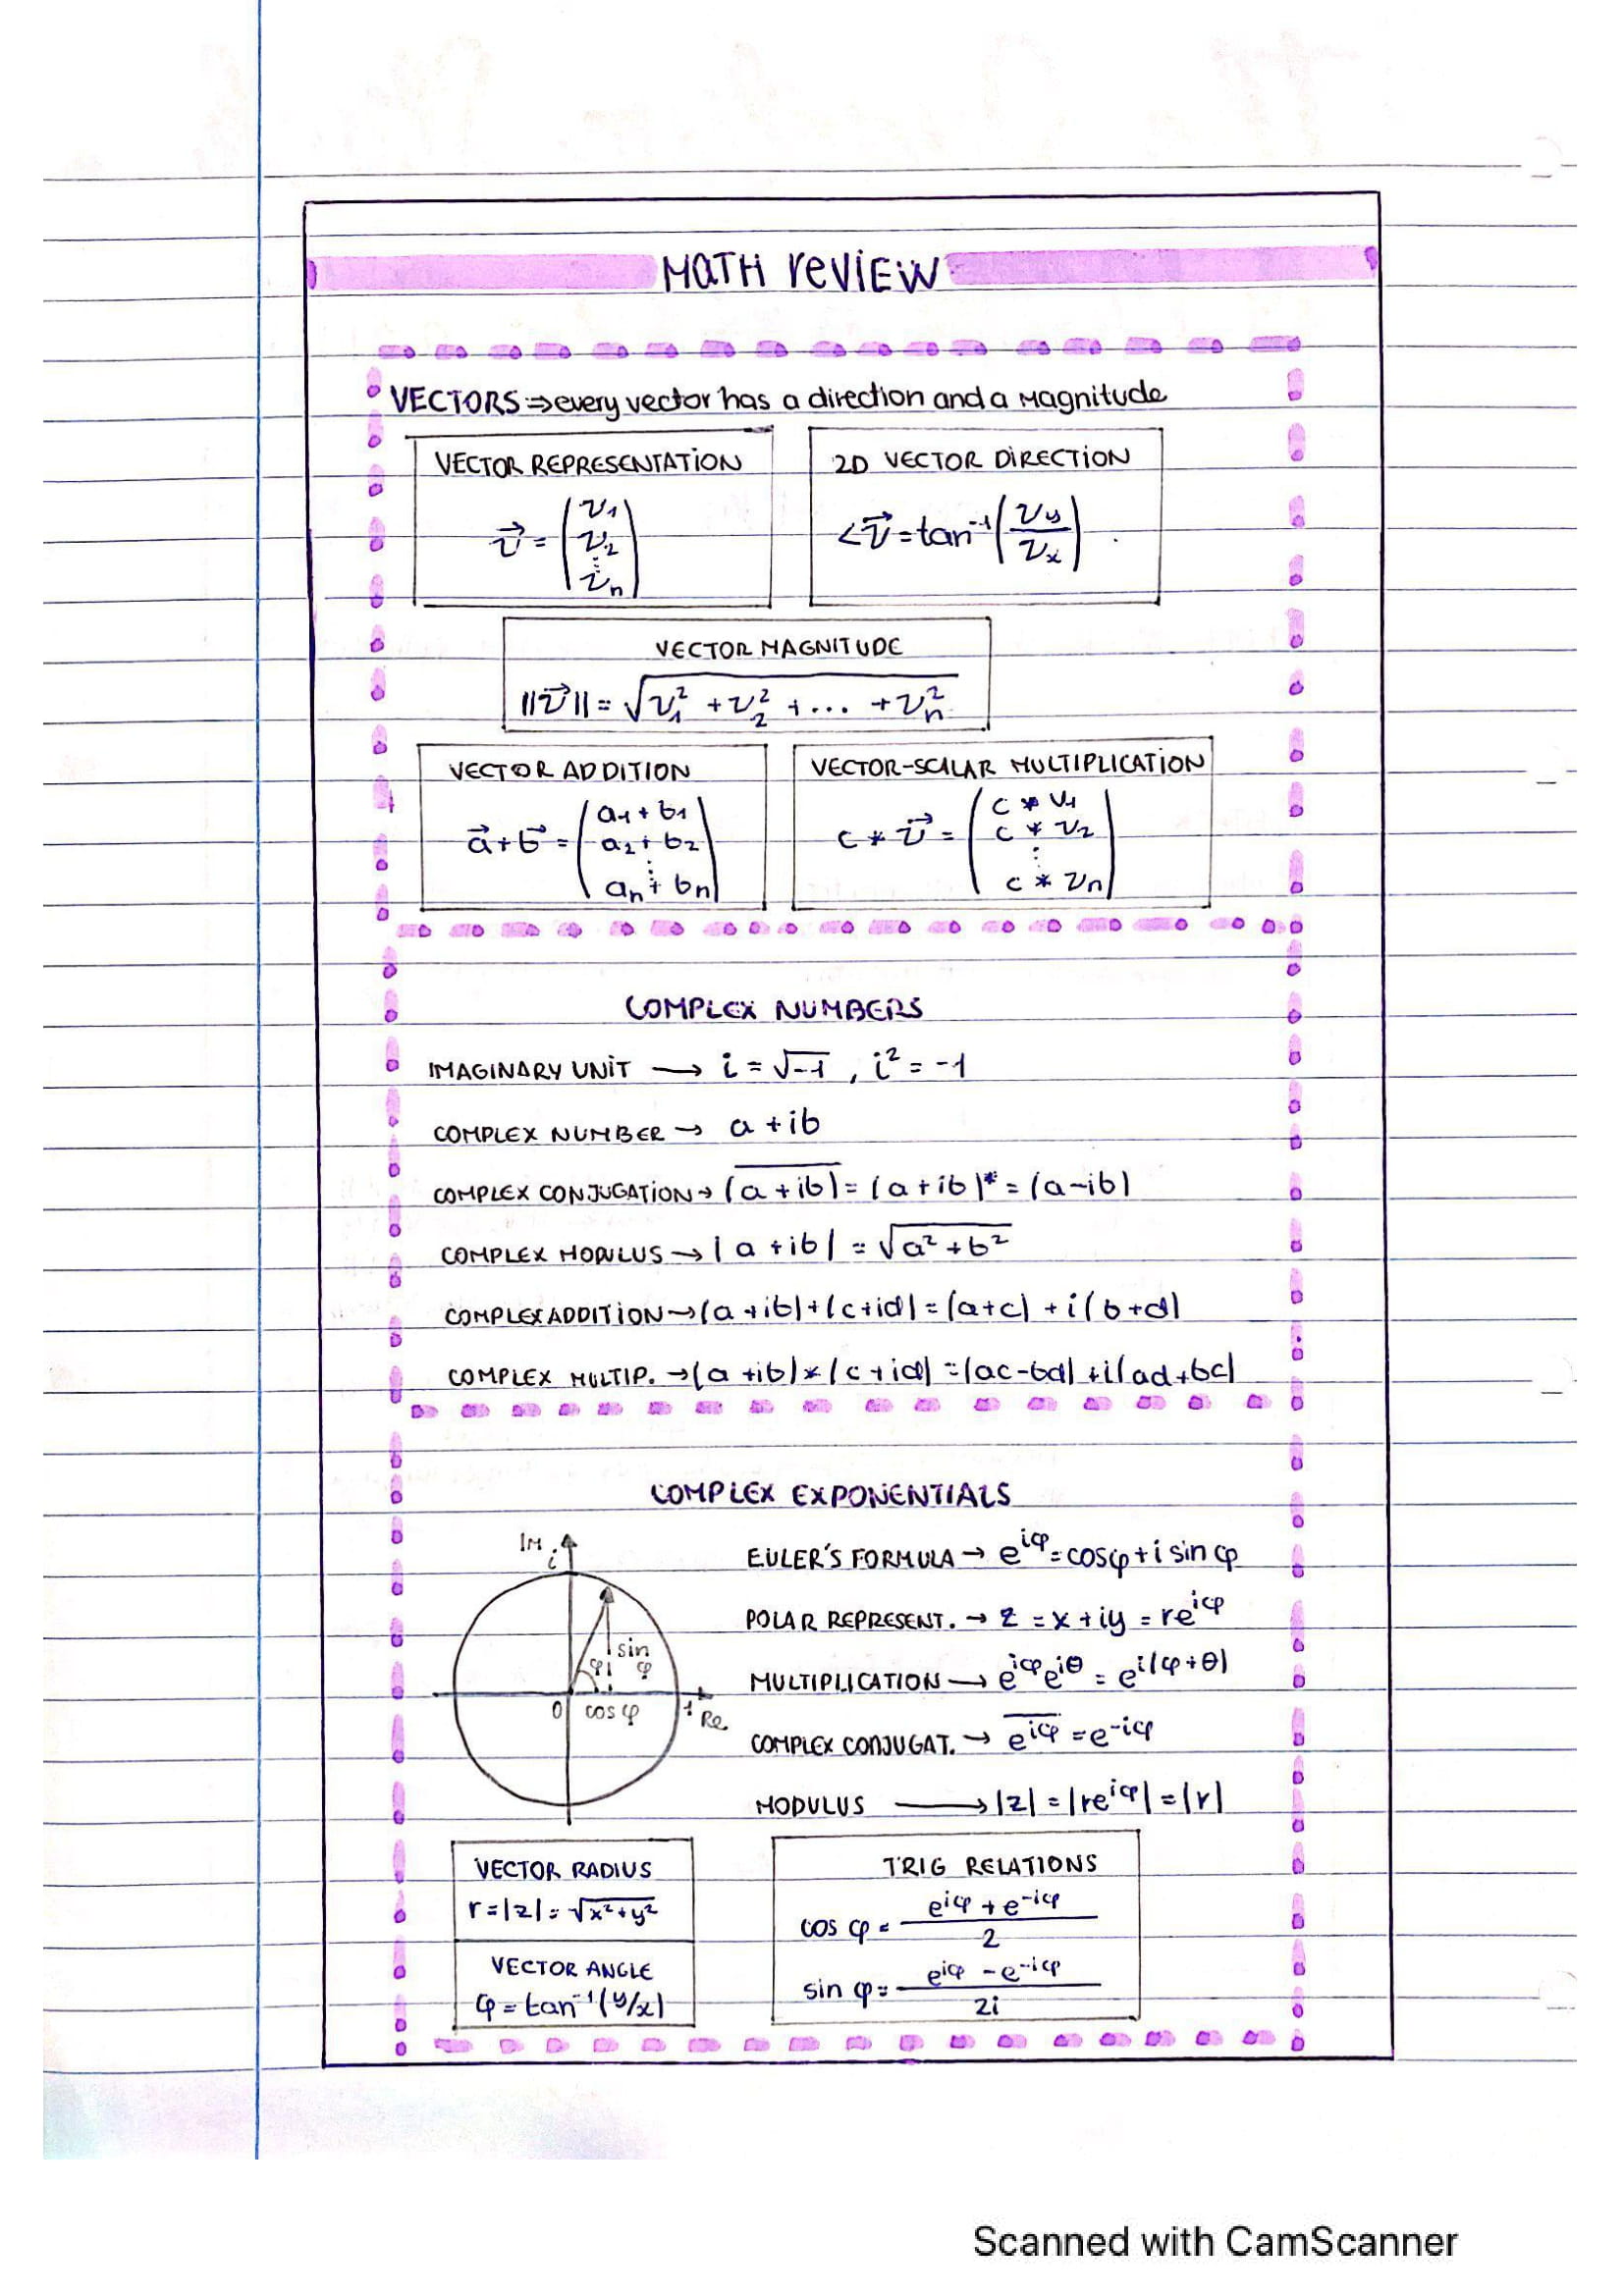 MATH REVIEW
VECTORS ⇒ every vector has a direction and a magnitude
VECTOR REPRESENTATION
v⃗ = (v₁ v₂ ⋮ vₙ)
2D VECTOR DIRECTION
<v⃗ = tan⁻¹(v_y/v_x)
VECTOR MAGNITUDE
||v⃗|| = √(v₁² + v₂² + ... + vₙ²)
VECTOR ADDITION
a⃗ + b⃗ = (a₁ + b₁ a₂ + b₂ ⋮ aₙ + bₙ)
VECTOR-SCALAR MULTIPLICATION
c * v⃗ = (c * v₁ c * v₂ ⋮ c * vₙ)
COMPLEX NUMBERS
IMAGINARY UNIT → i = √-1 , i² = -1
COMPLEX NUMBER → a + ib
COMPLEX CONJUGATION → \overline{(a + ib)} = (a + ib)* = (a - ib)
COMPLEX MODULUS → |a + ib| = √(a² + b²)
COMPLEX ADDITION → (a + ib) + (c + id) = (a + c) + i(b + d)
COMPLEX MULTIP. → (a + ib) * (c + id) = (ac - bd) + i(ad + bc)
COMPLEX EXPONENTIALS
Im
i
sin φ
φ
0
cos φ
1
Re
EULER'S FORMULA → e^{iφ} = cos φ + i sin φ
POLAR REPRESENT. → z = x + iy = re^{iφ}
MULTIPLICATION → e^{iφ} e^{iθ} = e^{i(φ + θ)}
COMPLEX CONJUGAT. → \overline{e^{iφ}} = e^{-iφ}
MODULUS → |z| = |re^{iφ}| = |r|
VECTOR RADIUS
r = |z| = √(x² + y²)
VECTOR ANGLE
φ = tan⁻¹(y/x)
TRIG RELATIONS
cos φ = (e^{iφ} + e^{-iφ})/2
sin φ = (e^{iφ} - e^{-iφ})/2i
Scanned with CamScanner